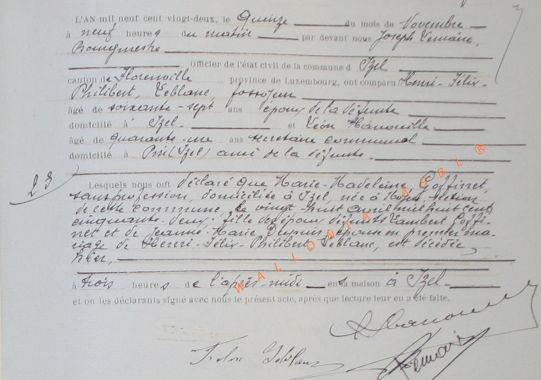 L'AN mil neuf cent vingt-deux, le Quinze du mois de Novembre
à neuf heures du matin par devant nous Joseph Lemaire,
Bourgmestre
Officier de l'état civil de la commune d'Izel
canton de Florenville province de Luxembourg, ont comparu Henri-Félix-
Philibert, Leblanc, fossoyeur
âgé de soixante-sept ans époux de la défunte
domicilié à Izel et Léon Hanonville
âgé de quarante-une ans secrétaire communal
domicilié à Pin (Izel) ami de la défunte
23
Lesquels nous ont déclaré que Marie-Madeleine Goffinet,
sans profession, domiciliée à Izel, née à section
de cette commune, le vingt-huit mil huit cent
cinquante-deux, fille des époux défunts Lambert Goffi-
net et de Jeanne-Marie Dupuis épouse en premier ma-
riage de Henri-Félix-Philibert Leblanc, est décédée
hier,
à trois heures de l'après-midi en sa maison à Izel
et on les déclarants signé avec nous le présent acte, après que lecture leur en a été faite.
WALLONIA ASBL ®